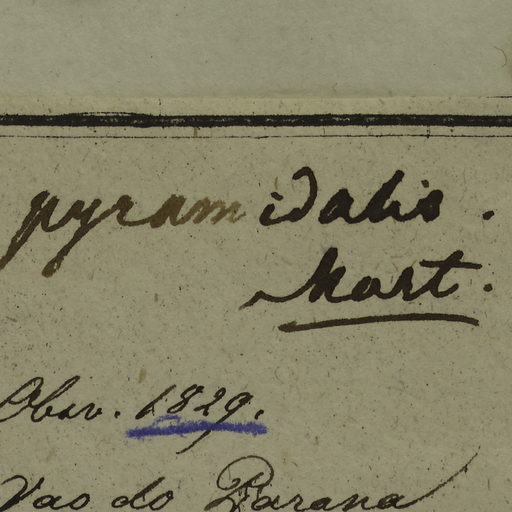 pyramidalis.
Mart.
Obsv. 1829.
Vao do Parana